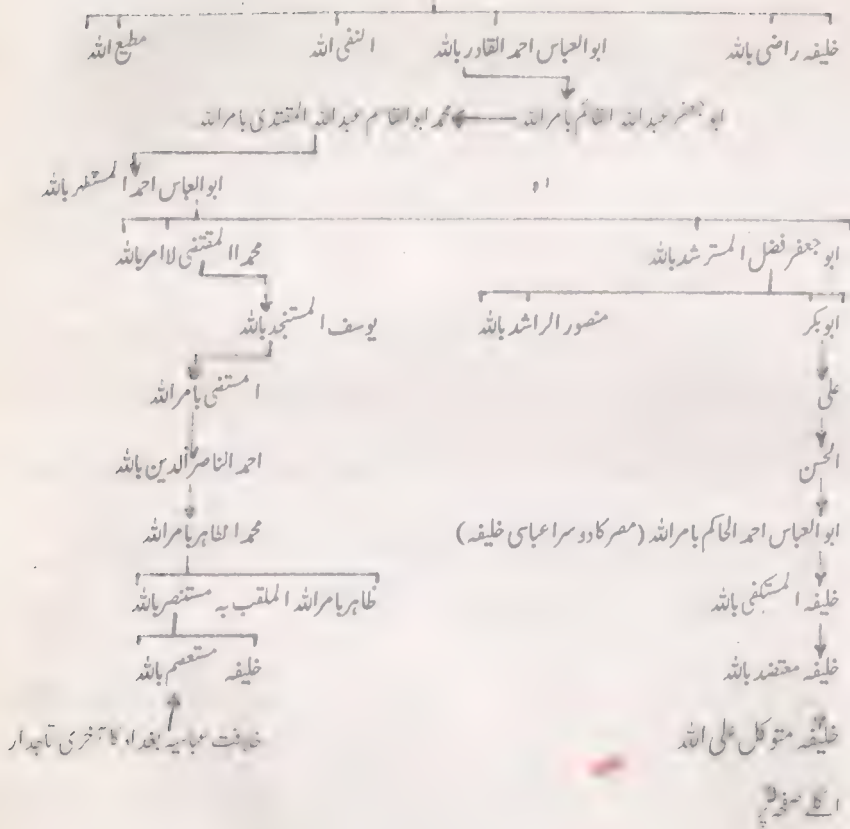 خلیفہ راضی باللہ ابوالعباس احمد القادر باللہ النفی اللہ مطیع اللہ
ابو جعفر عبداللہ القائم بامراللہ محمد ابوالقاسم عبداللہ المقتدی بامراللہ
ابوالعباس احمد المستظہر باللہ
ابو جعفر فضل المسترشد باللہ محمد االمقتفی لاامرباللہ
ابوبکر منصور الراشد باللہ یوسف المستنجد باللہ
علی المستفی بامراللہ
الحسن احمد الناصر الدین باللہ
ابوالعباس احمد الحاکم بامراللہ (مصر کا دوسرا عباسی خلیفہ) محمد الظاہر بامراللہ
خلیفہ المستکفی باللہ ظاہر بامراللہ الملقب بہ مستنصر باللہ
خلیفہ معتضد باللہ خلیفہ مستعصم باللہ
خلیفہ متوکل علی اللہ خلافت عباسیہ بغداد کا آخری تاجدار
اگلے صفحہ پر